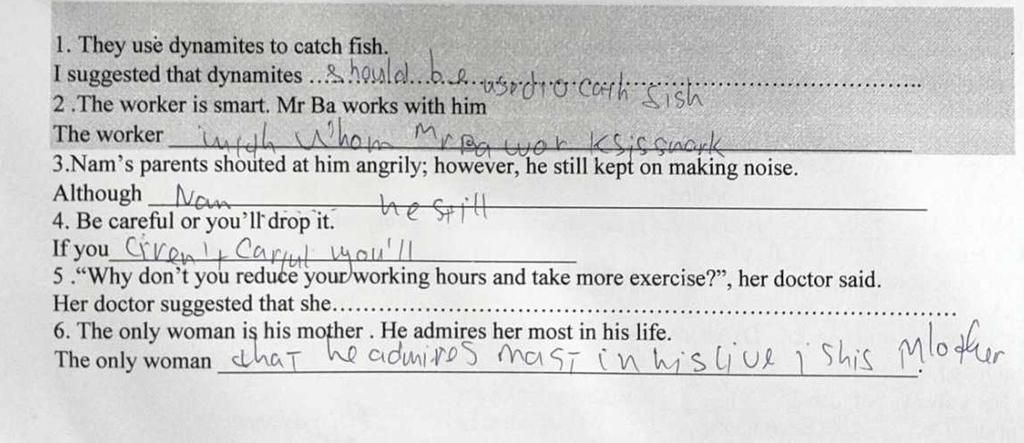 1. They use dynamites to catch fish.
I suggested that dynamites ..should..be..used to cach fish..............
2 .The worker is smart. Mr Ba works with him
The worker with whom Mr Ba works is smark
3.Nam’s parents shouted at him angrily; however, he still kept on making noise.
Although Nam he still
4. Be careful or you’ll drop it.
If you aren't carful you'll
5 .“Why don’t you reduce your working hours and take more exercise?”, her doctor said.
Her doctor suggested that she..............................................................
6. The only woman is his mother . He admires her most in his life.
The only woman that he admires mast in his live is his Mother.